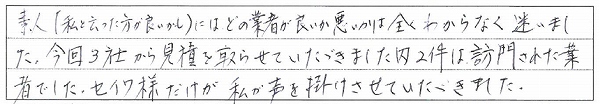 素人(私と云った方が良いかし)にはどの業者が良いか悪いかは全くわからなく迷いまし
た。今回3社から見積を取らせていただきました内2件は訪問された業
者でした。セイワ様だけが私が声を掛けさせていただきました。